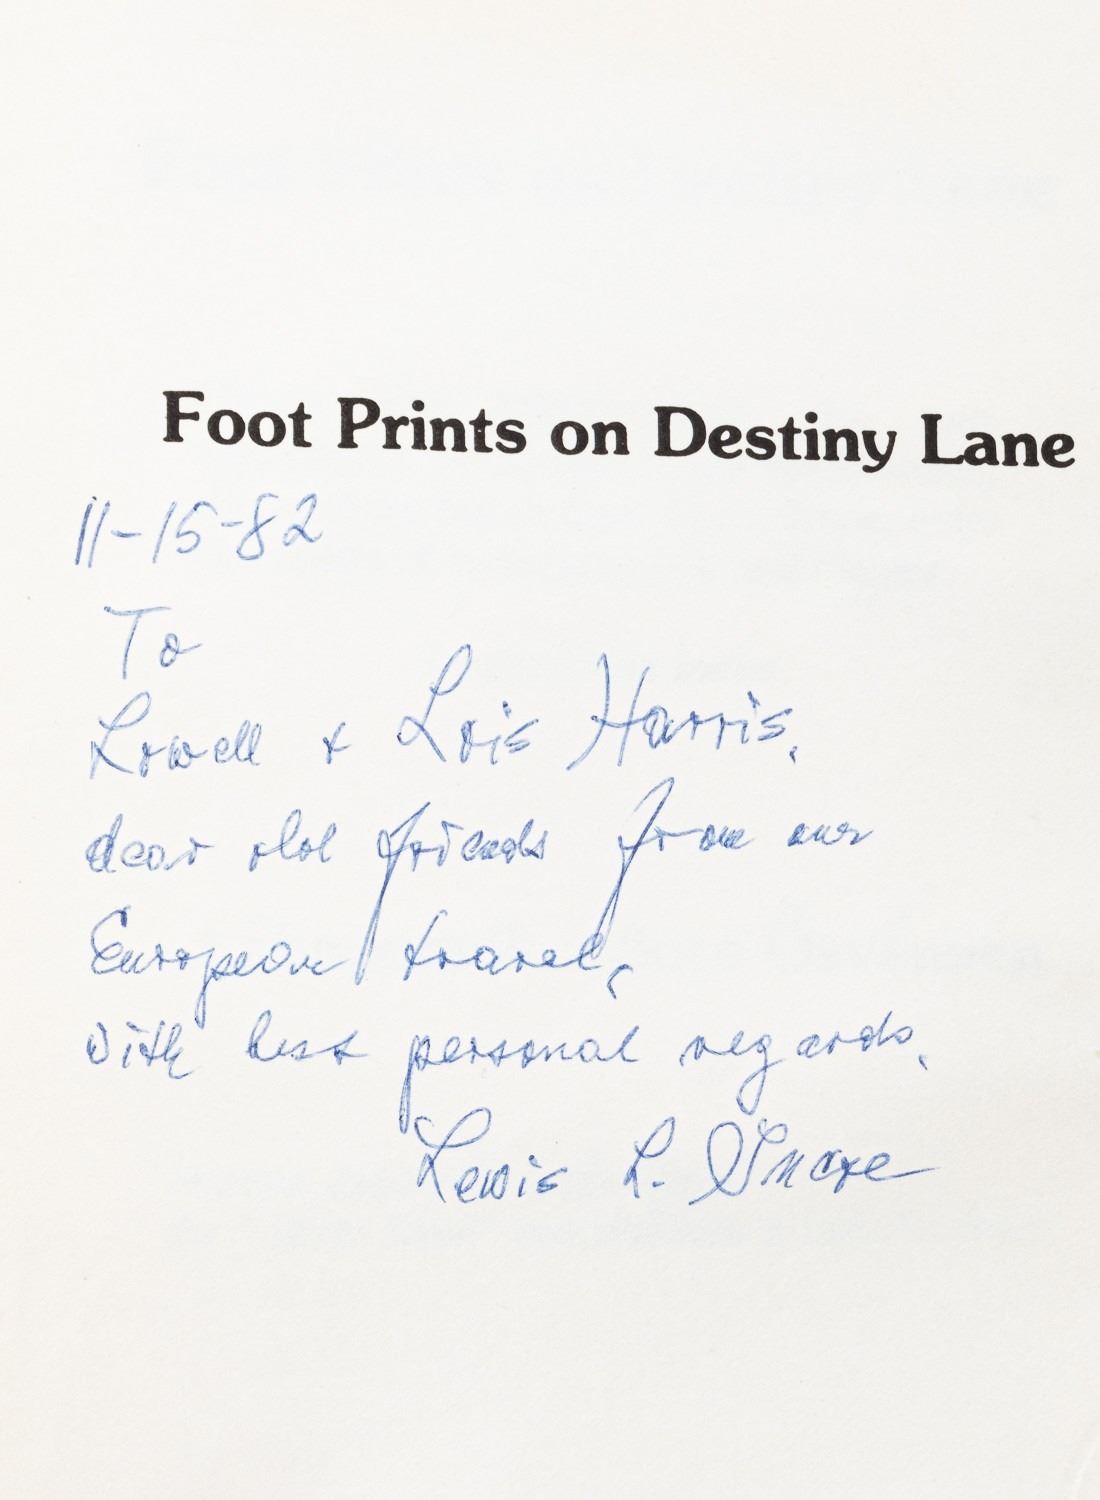 Foot Prints on Destiny Lane
11-15-82
To
Lowell + Lois Harris,
dear old friends from our
European travel,
with best personal regards,
Lewis L.